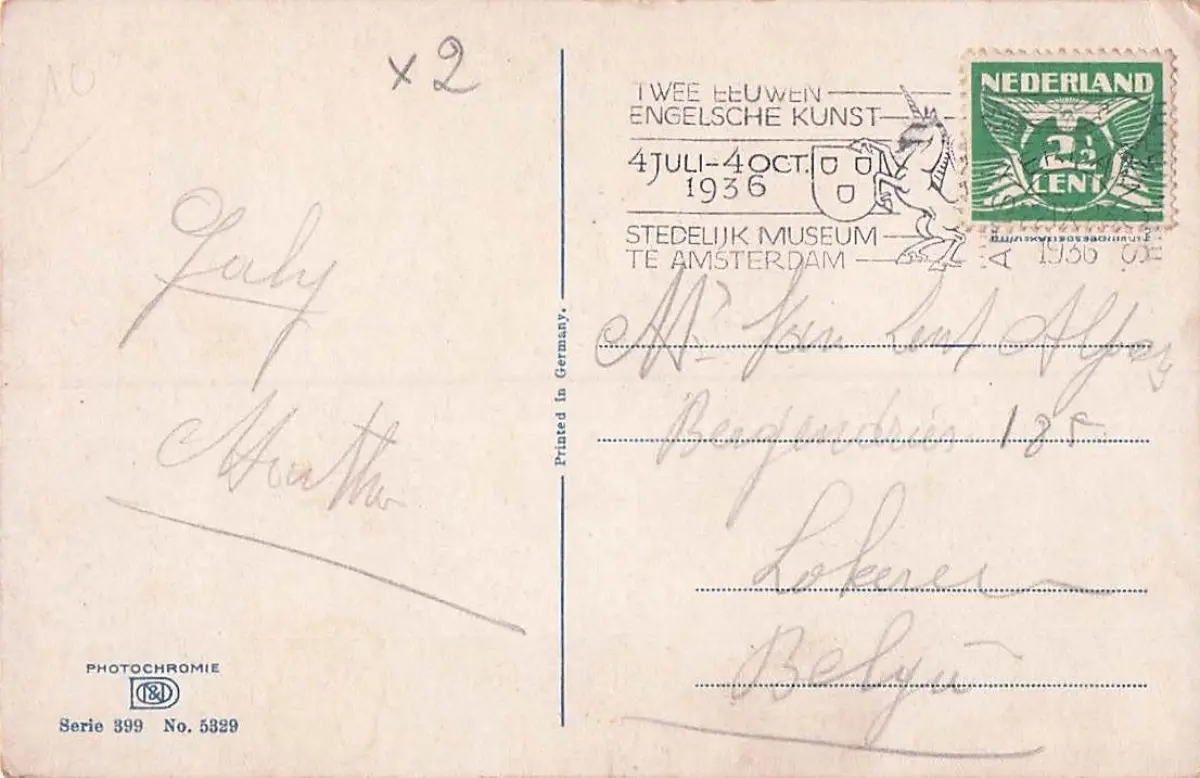 x 2
Gaby
Martha
PHOTOCHROMIE
Serie 399 No. 5329
Printed in Germany.
TWEE EEUWEN
ENGELSCHE KUNST
4 JULI-4 OCT.
1936
STEDELIJK MUSEUM
TE AMSTERDAM
NEDERLAND
2½
CENT
1936
Mr Van Lent
185
Lokeren
Belgie